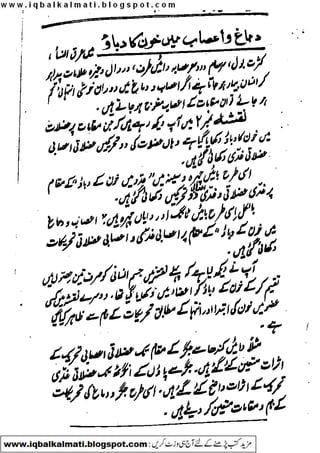 www.iqbalkalmati.blogspot.com
دماغ و اعصاب میں خون کا دباؤ میں عرق النساء،
کثرت بول، سہام دردِ عصابہ دائیں طرف، دردِ دل وغیرہ علامات پیدا ہو
کر انسان بیمار ہو جاتا ہے اگر اعصاب میں دورانِ خون انتہائی کم
ہو جائے تو ان مقامات کے اعصاب مفلوج ہو جاتے ہیں۔
نقشہ نمبر ۲ میں آپ دیکھ رہے ہیں کہ جن مقامات پر عضلات
میں خون کا دباؤ دکھایا گیا ہے وہاں عضلات کی دو تحریکیں عضلاتی اعصابی
عضلاتی غدی دکھائی گئی ہیں۔
اسی طرح بائیں چہرہ و سینہ میں "غدد میں خون کے دباؤ" کے مقام
پر غدی عضلاتی و غدی اعصابی تحریکیں دکھائی گئی ہیں۔
بالکل اسی طرح بائیں ٹانگ اور دایاں چہرہ میں "اعصاب و دماغ
میں خون کے دباؤ" کے مقام پر اعصابی غدی و اعصابی عضلاتی تحریکات
دکھائی گئی ہیں۔
آپ نے دیکھ لیا ہے کہ پہلے نقشے میں جسم انسانی کو صرف تین حصوں میں
تقسیم کر کے خون کے دباؤ کو اعضاء میں دکھایا گیا تھا۔ دوسرے نقشہ میں کسی
عضو میں خون کی ابتدا اور انتہا کے مطابق تحریکات کے نام سے ظاہر کیا گیا
ہے۔
مثلاً دائیں کندھا سے جگر کے مقام تک عضلاتی اعصابی تحریک کے
اثرات متعین کئے گئے ہیں۔ جگر سے پاؤں کے انگوٹھے تک عضلاتی غدی
تحریک کے اثرات واضح کئے گئے ہیں۔ اسی طرح جگر و دماغ کی تحریکات
کے نام و مقامات متعین کر دیئے ہیں۔
مزید کتب پڑھنے کے لئے آج ہی وزٹ کریں: www.iqbalkalmati.blogspot.com